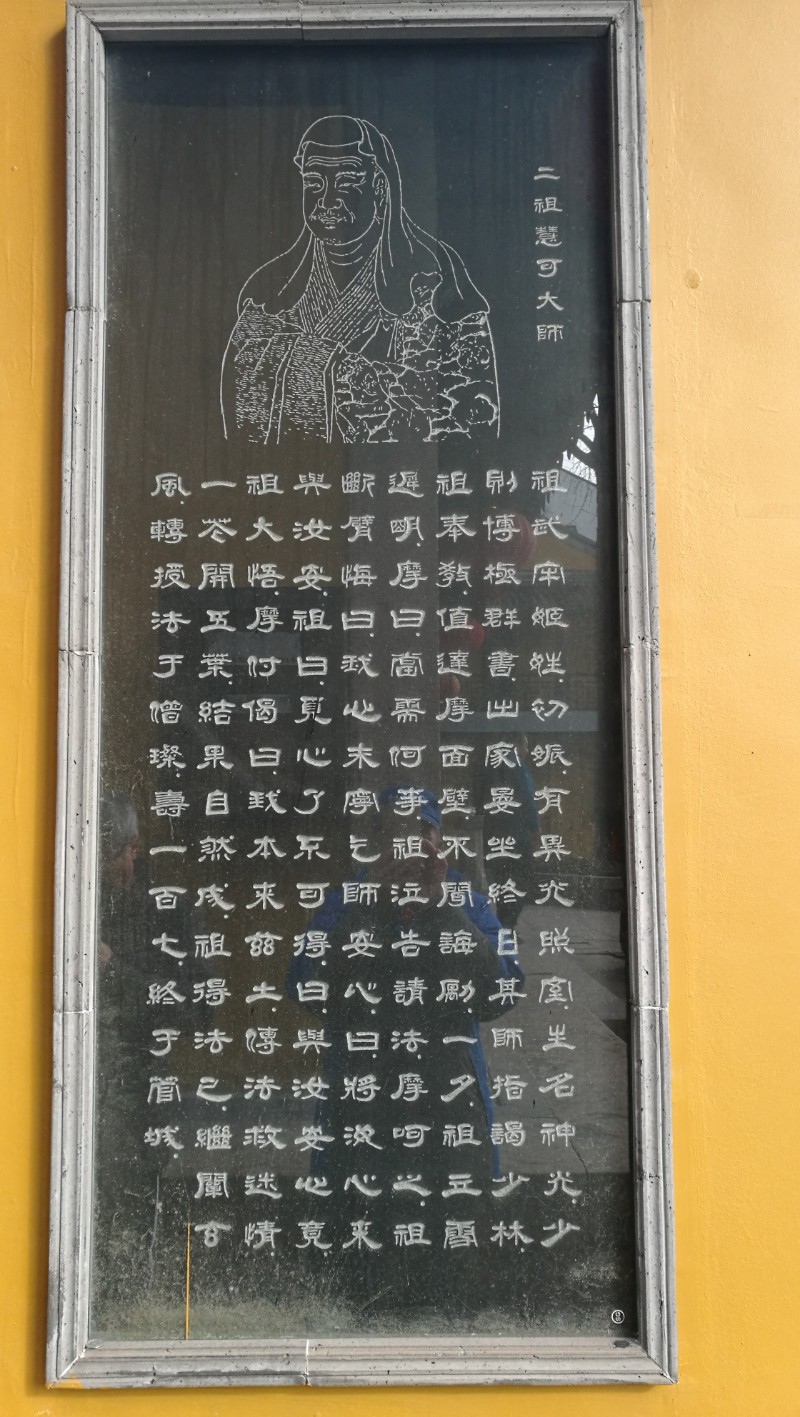 二祖慧可大師
祖武牢姬姓.初娠.有異光照室.生名神光.少
則博極群書.出家晏坐終日.其師指謁少林.
祖奉教.值達摩面壁.不聞誨勵.一夕.祖立雪
遲明.摩曰.當需何事.祖泣告請法.摩呵之.祖
斷臂悔曰.我心未寧乞師安心.曰.將汝心來
與汝安.祖曰.覓心了不可得.曰.與汝安心竟.
祖大悟.摩付偈曰.我本来茲土.傳法救迷情.
一花開五葉.結果自然成.祖得法已.繼闡玄
風.轉授法于僧璨.壽一百七.終于管城.